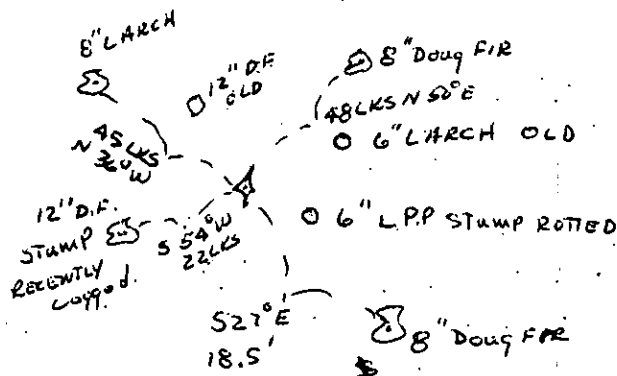 8" LARCH
12" D.F.
OLD
8" Doug FIR
48 LKS N 50° E
6" LARCH OLD
45 LKS
N 36° W
12" D.F.
STUMP
RECENTLY
Logged.
S 54° W
22 LKS
6" L.P.P STUMP ROTTED
S27° E
18.5'
8" Doug FIR